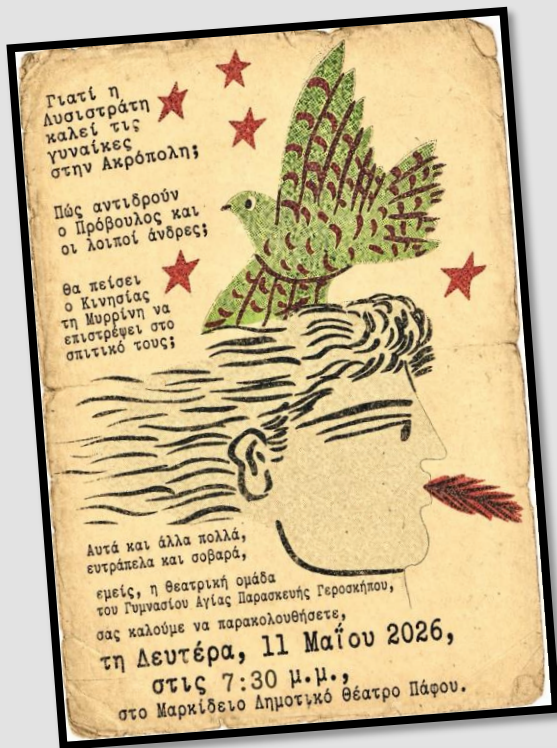 Γιατί η
Λυσιστράτη
καλεί τις
γυναίκες
στην Ακρόπολη;
Πώς αντιδρούν
ο Πρόβουλος και
οι λοιποί άνδρες;
Θα πείσει
ο Κινησίας
τη Μυρρίνη να
επιστρέψει στο
σπιτικό τους;
Αυτά και άλλα πολλά,
ευτράπελα και σοβαρά,
εμείς, η θεατρική ομάδα
του Γυμνασίου Αγίας Παρασκευής Γεροσκήπου,
σας καλούμε να παρακολουθήσετε,
τη Δευτέρα, 11 Μαΐου 2026,
στις 7:30 μ.μ.,
στο Μαρκίδειο Δημοτικό Θέατρο Πάφου.